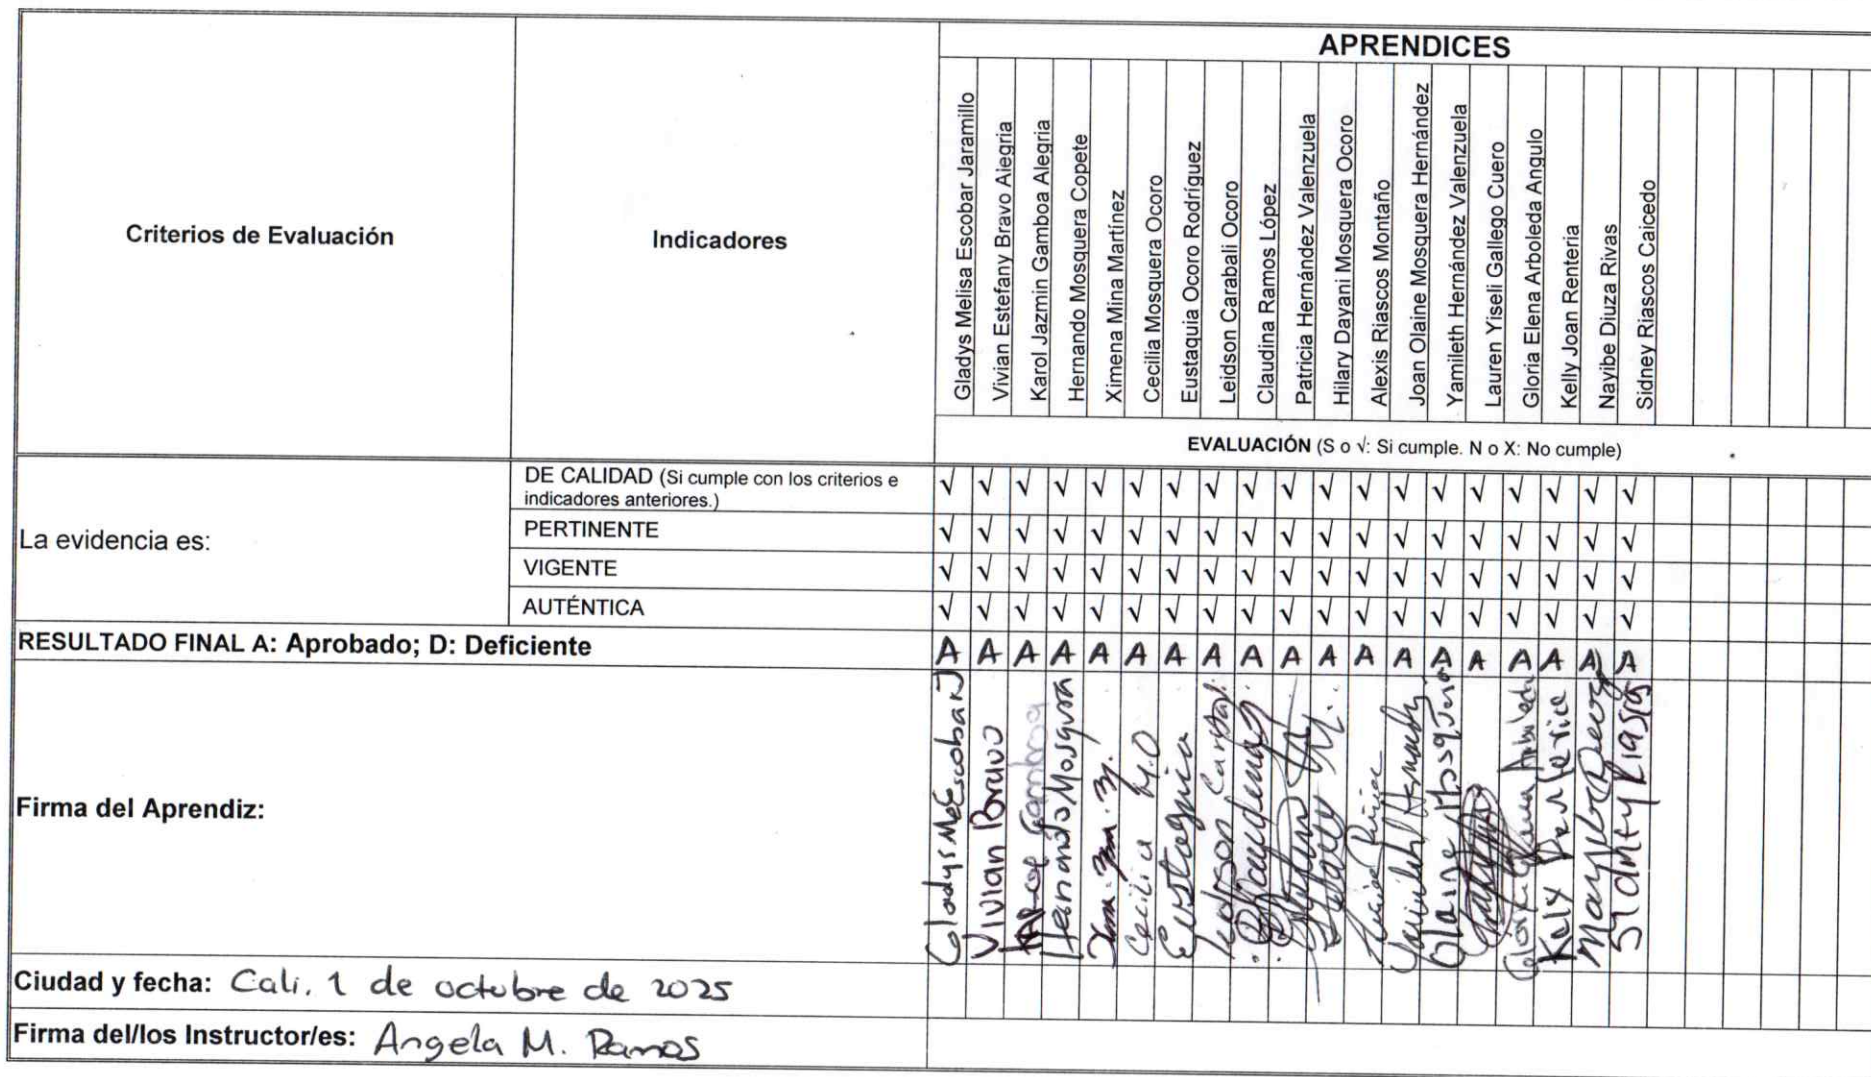 APRENDICES
Criterios de Evaluación
Indicadores
Gladys Melisa Escobar Jaramillo
Vivian Estefany Bravo Alegria
Karol Jazmin Gamboa Alegria
Hernando Mosquera Copete
Ximena Mina Martínez
Cecilia Mosquera Ocoro
Eustaquia Ocoro Rodríguez
Leidson Carabali Ocoro
Claudina Ramos López
Patricia Hernández Valenzuela
Hilary Dayani Mosquera Ocoro
Alexis Riascos Montaño
Joan Olaine Mosquera Hernández
Yamileth Hernández Valenzuela
Lauren Yiseli Gallego Cuero
Gloria Elena Arboleda Angulo
Kelly Joan Renteria
Nayibe Diuza Rivas
Sidney Riascos Caicedo
EVALUACIÓN (S o √: Si cumple. N o X: No cumple)
La evidencia es:
DE CALIDAD (Si cumple con los criterios e
indicadores anteriores.) √ √ √ √ √ √ √ √ √ √ √ √ √ √ √ √ √ √ √
PERTINENTE √ √ √ √ √ √ √ √ √ √ √ √ √ √ √ √ √ √ √
VIGENTE √ √ √ √ √ √ √ √ √ √ √ √ √ √ √ √ √ √ √
AUTÉNTICA √ √ √ √ √ √ √ √ √ √ √ √ √ √ √ √ √ √ √
RESULTADO FINAL A: Aprobado; D: Deficiente A A A A A A A A A A A A A A A A A A A
Firma del Aprendiz:
Gladys Me Escobar J
Vivian Bravo
Karol Gamboa
Hernando Mosquera
Cecilia M.O
Eustaquia
Ciudad y fecha: Cali, 1 de octubre de 2025
Firma del/los Instructor/es: Angela M. Ramos